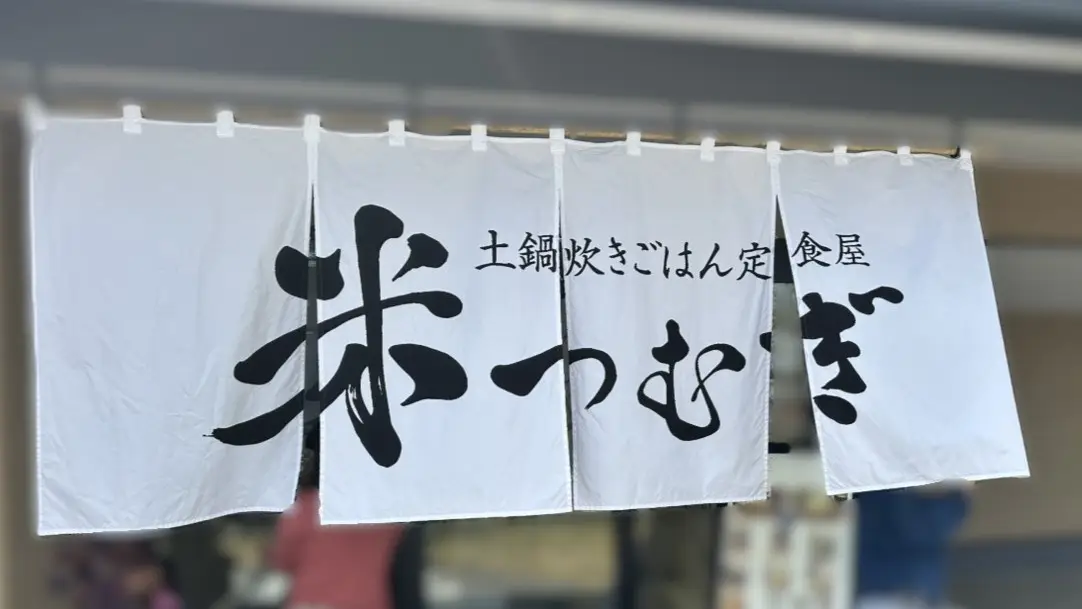 土鍋炊きごはん定食屋
米つむぎ